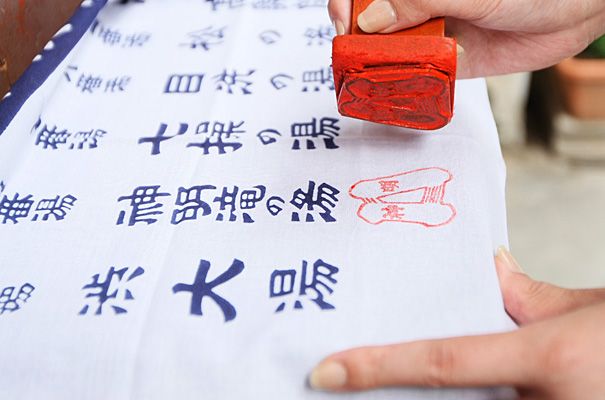 番湯 松の湯
番湯 目洗の湯
番湯 七操の湯
番湯 神明滝の湯
湯 渋大湯